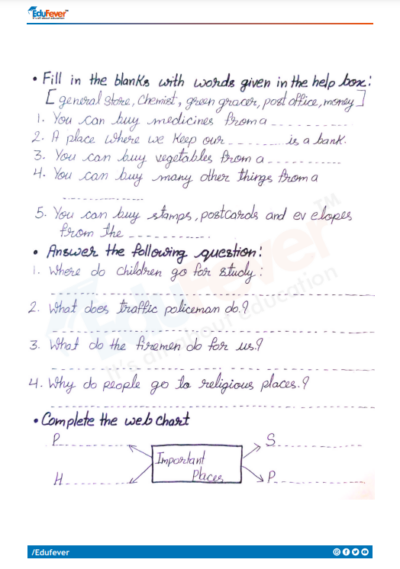 EduFever
• Fill in the blanks with words given in the help box:
[general store, Chemist, green grocer, post office, money]
1. You can buy medicines from a ----------
2. A place where we keep our -------- is a bank.
3. You can buy vegetables from a ----------
4. You can buy many other things from a
----------
5. You can buy stamps, postcards and ev elopes
from the ----------
• Answer the following question:
1. Where do children go for study:
2. What does traffic policeman do.?
3. What do the firemen do for us.?
4. Why do people go to religious places.?
• Complete the web chart
P---------- S----------
Important
Places
H---------- P----------
/Edufever